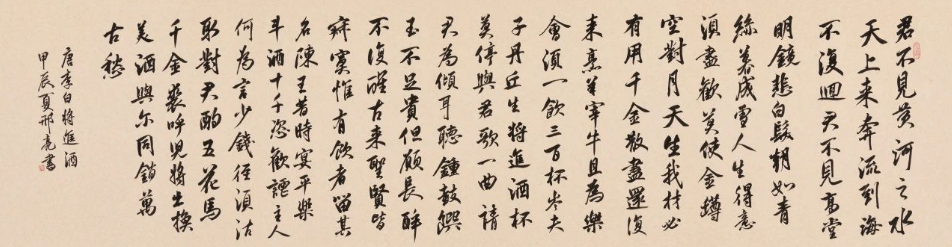 君不見黃河之水
天上来奔流到海
不復迴君不見高堂
明鏡悲白髮朝如青
絲暮成雪人生得意
須盡歡莫使金罇
空對月天生我材必
有用千金散盡還復
来烹羊宰牛且為樂
會須一飲三百杯岑夫
子丹丘生將進酒杯
莫停與君歌一曲請
君為傾耳聽鍾鼓饌
玉不足貴但願長醉
不復醒古来聖賢皆
寂寞惟有飲者留其
名陳王昔時宴平樂
斗酒十千恣歡謔主人
何為言少錢徑須沽
取對君酌五花馬
千金裘呼兒將出換
美酒與尔同銷萬
古愁
唐李白將進酒
甲辰夏邢亮書